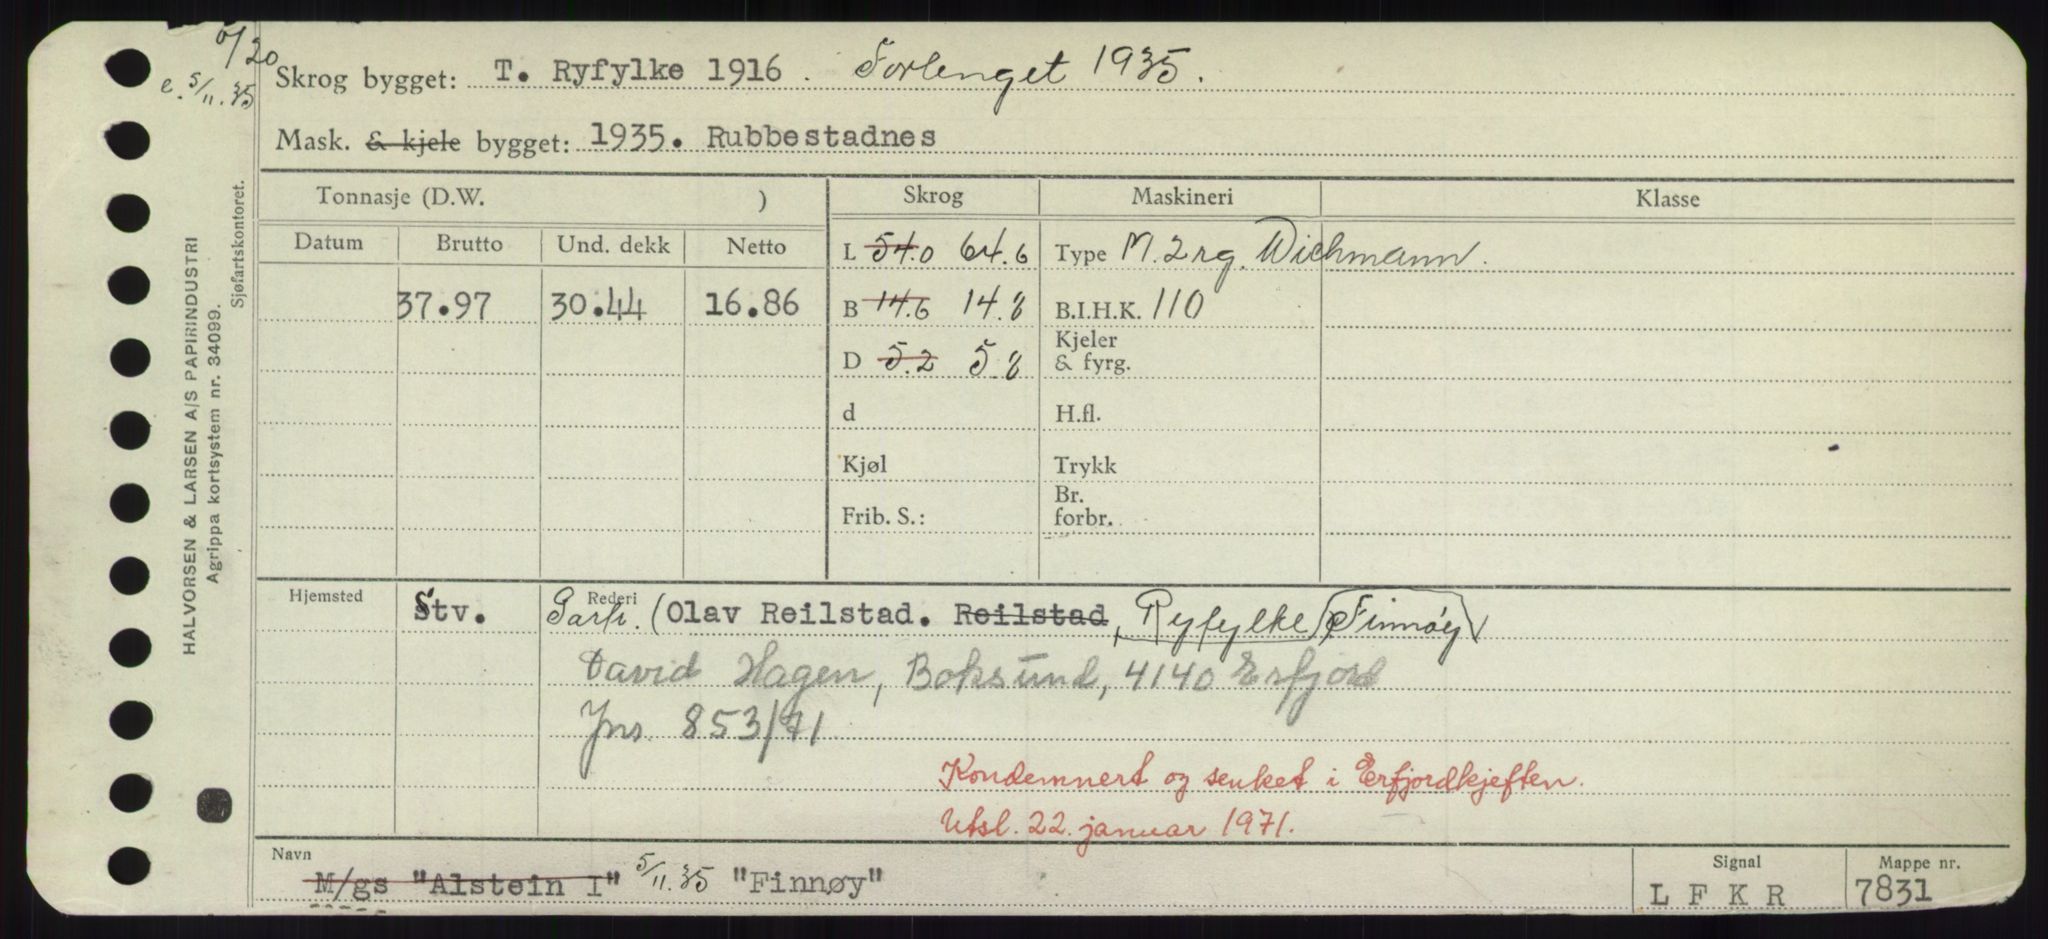 6/20
e. 5/11.35
Skrog bygget: T. Ryfylke 1916. Forlenget 1935.
Mask. & kjele bygget: 1935. Rubbestadnes
Tonnasje (D.W. ) Skrog Maskineri Klasse
Datum Brutto Und. dekk Netto
L 54.0 64.6 Type M. 2 rg. Wichmann.
37.97 30.44 16.86 B 14.6 14.8 B.I.H.K. 110
D 5.2 5.8 Kjeler & fyrg.
d H.fl.
Kjøl Trykk
Frib. S.: Br. forbr.
Hjemsted Rederi
Stv. Partr. (Olav Reilstad. Reilstad, Ryfylke (Finnøy)
David Hagen, Boksund, 4140 Erfjord
Jns. 853/71
Kondemnert og senket i Erfjordkjeften.
Utsl. 22. januar 1971.
Navn Signal Mappe nr.
M/gs "Alstein I" 5/11.35 "Finnøy" L F K R 7831
HALVORSEN & LARSEN A/S PAPIRINDUSTRI
Agrippa kortsystem nr. 34099.
Sjøfartskontoret.